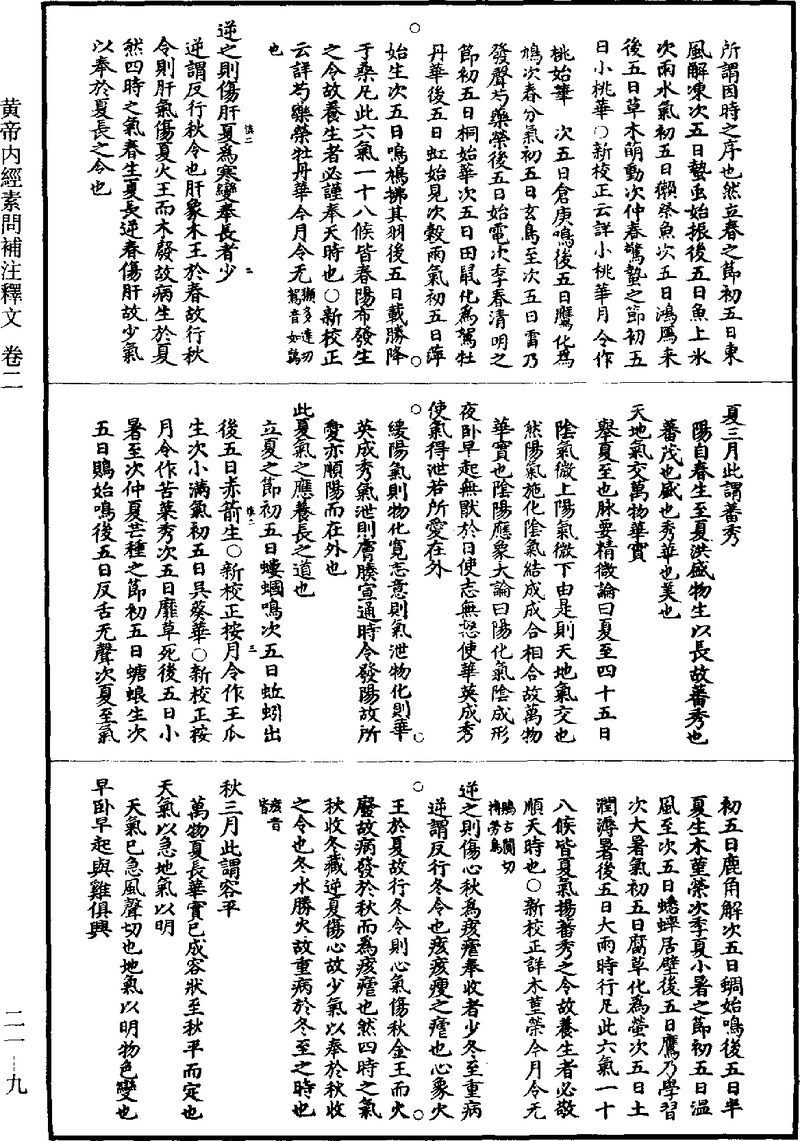 所謂因時之序也然立春之節初五日東
風解凍次五日蟄虫始振後五日魚上氷
次雨水氣初五日獺祭魚次五日鴻鴈来
後五日草木萌動次仲春驚蟄之節初五
日小桃華○新校正云詳小桃華月令作
桃始華　次五日倉庚鳴後五日鷹化為
鳩次春分氣初五日玄鳥至次五日雷乃
發聲芍藥榮後五日始電次季春清明之
節初五日桐始華次五日田鼠化為鴽牡
丹華後五日虹始見次穀雨氣初五日萍
始生次五日鳴鳩拂其羽後五日戴勝降
于桑凡此六氣一十八候皆春陽布發生
之令故養生者必謹奉天時也○新校正
云詳芍藥榮牡丹華今月令无
也
逆之則傷肝夏為寒變奉長者少
逆謂反行秋令也肝象木王於春故行秋
令則肝氣傷夏火王而木發故病生於夏
然四時之氣春生夏長逆春傷肝故少氣
以奉於夏長之令也
夏三月此謂蕃秀
陽自春生至夏洪盛物生以長故蕃秀也
蕃茂也盛也秀華也美也
天地氣交萬物華實
舉夏至也脉要精微論曰夏至四十五日
陰氣微上陽氣微下由是則天地氣交也
然陽氣施化陰氣結成成合相合故萬物
華實也陰陽應象大論曰陽化氣陰成形
夜卧早起無猒於日使志無怒使華英成秀
使氣得泄若所愛在外
緩陽氣則物化寛志意則氣泄物化則華
英成秀氣泄則膚腠宣通時令發陽故所
愛亦順陽而在外也
此夏氣之應養長之道也
立夏之節初五日螻蟈鳴次五日蚯蚓出
後五日赤箭生○新校正按月令作王瓜
生次小滿氣初五日吳葵華○新校正按
月令作苦菜秀次五日靡草死後五日小
暑至次仲夏芒種之節初五日螗蜋生次
五日鵙始鳴後五日反舌无聲次夏至氣
初五日鹿角解次五日蜩始鳴後五日半
夏生木菫榮次季夏小暑之節初五日温
風至次五日蟋蟀居壁後五日鷹乃學習
次大暑氣初五日腐草化為螢次五日土
潤溽暑後五日大雨時行凡此六氣一十
八候皆夏氣揚蕃秀之令故養生者必敬
順天時也○新校正詳木菫榮今月令无
鵙古闃切
博勞鳥
逆之則傷心秋為痎瘧奉收者少冬至重病
逆謂反行冬令也痎痎瘦之瘧也心象火
王於夏故行冬令則心氣傷秋金王而火
廢故病發於秋而為痎瘧也然四時之氣
秋收冬藏逆夏傷心故少氣以奉於秋收
之令也冬水勝火故重病於冬至之時也
痎音
皆
秋三月此謂容平
萬物夏長華實已成容狀至秋平而定也
天氣以急地氣以明
天氣已急風聲切也地氣以明物色變也
早卧早起與雞俱興
黄帝内經素問補注釋文　卷二
二一—九